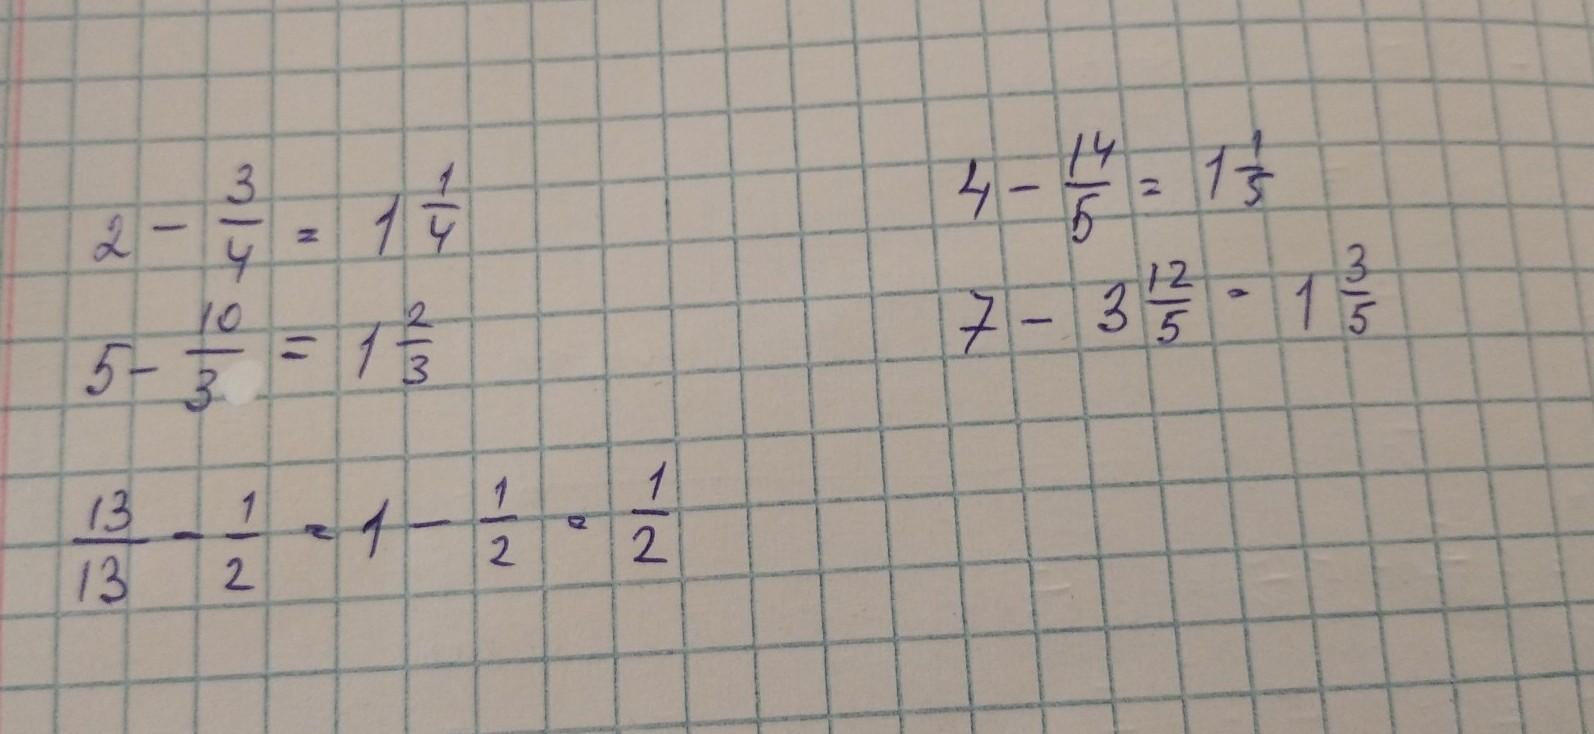 2 - 3/4 = 1 1/4
5 - 10/3 = 1 2/3
13/13 - 1/2 = 1 - 1/2 = 1/2
4 - 14/5 = 1 1/5
7 - 3 12/5 = 1 3/5